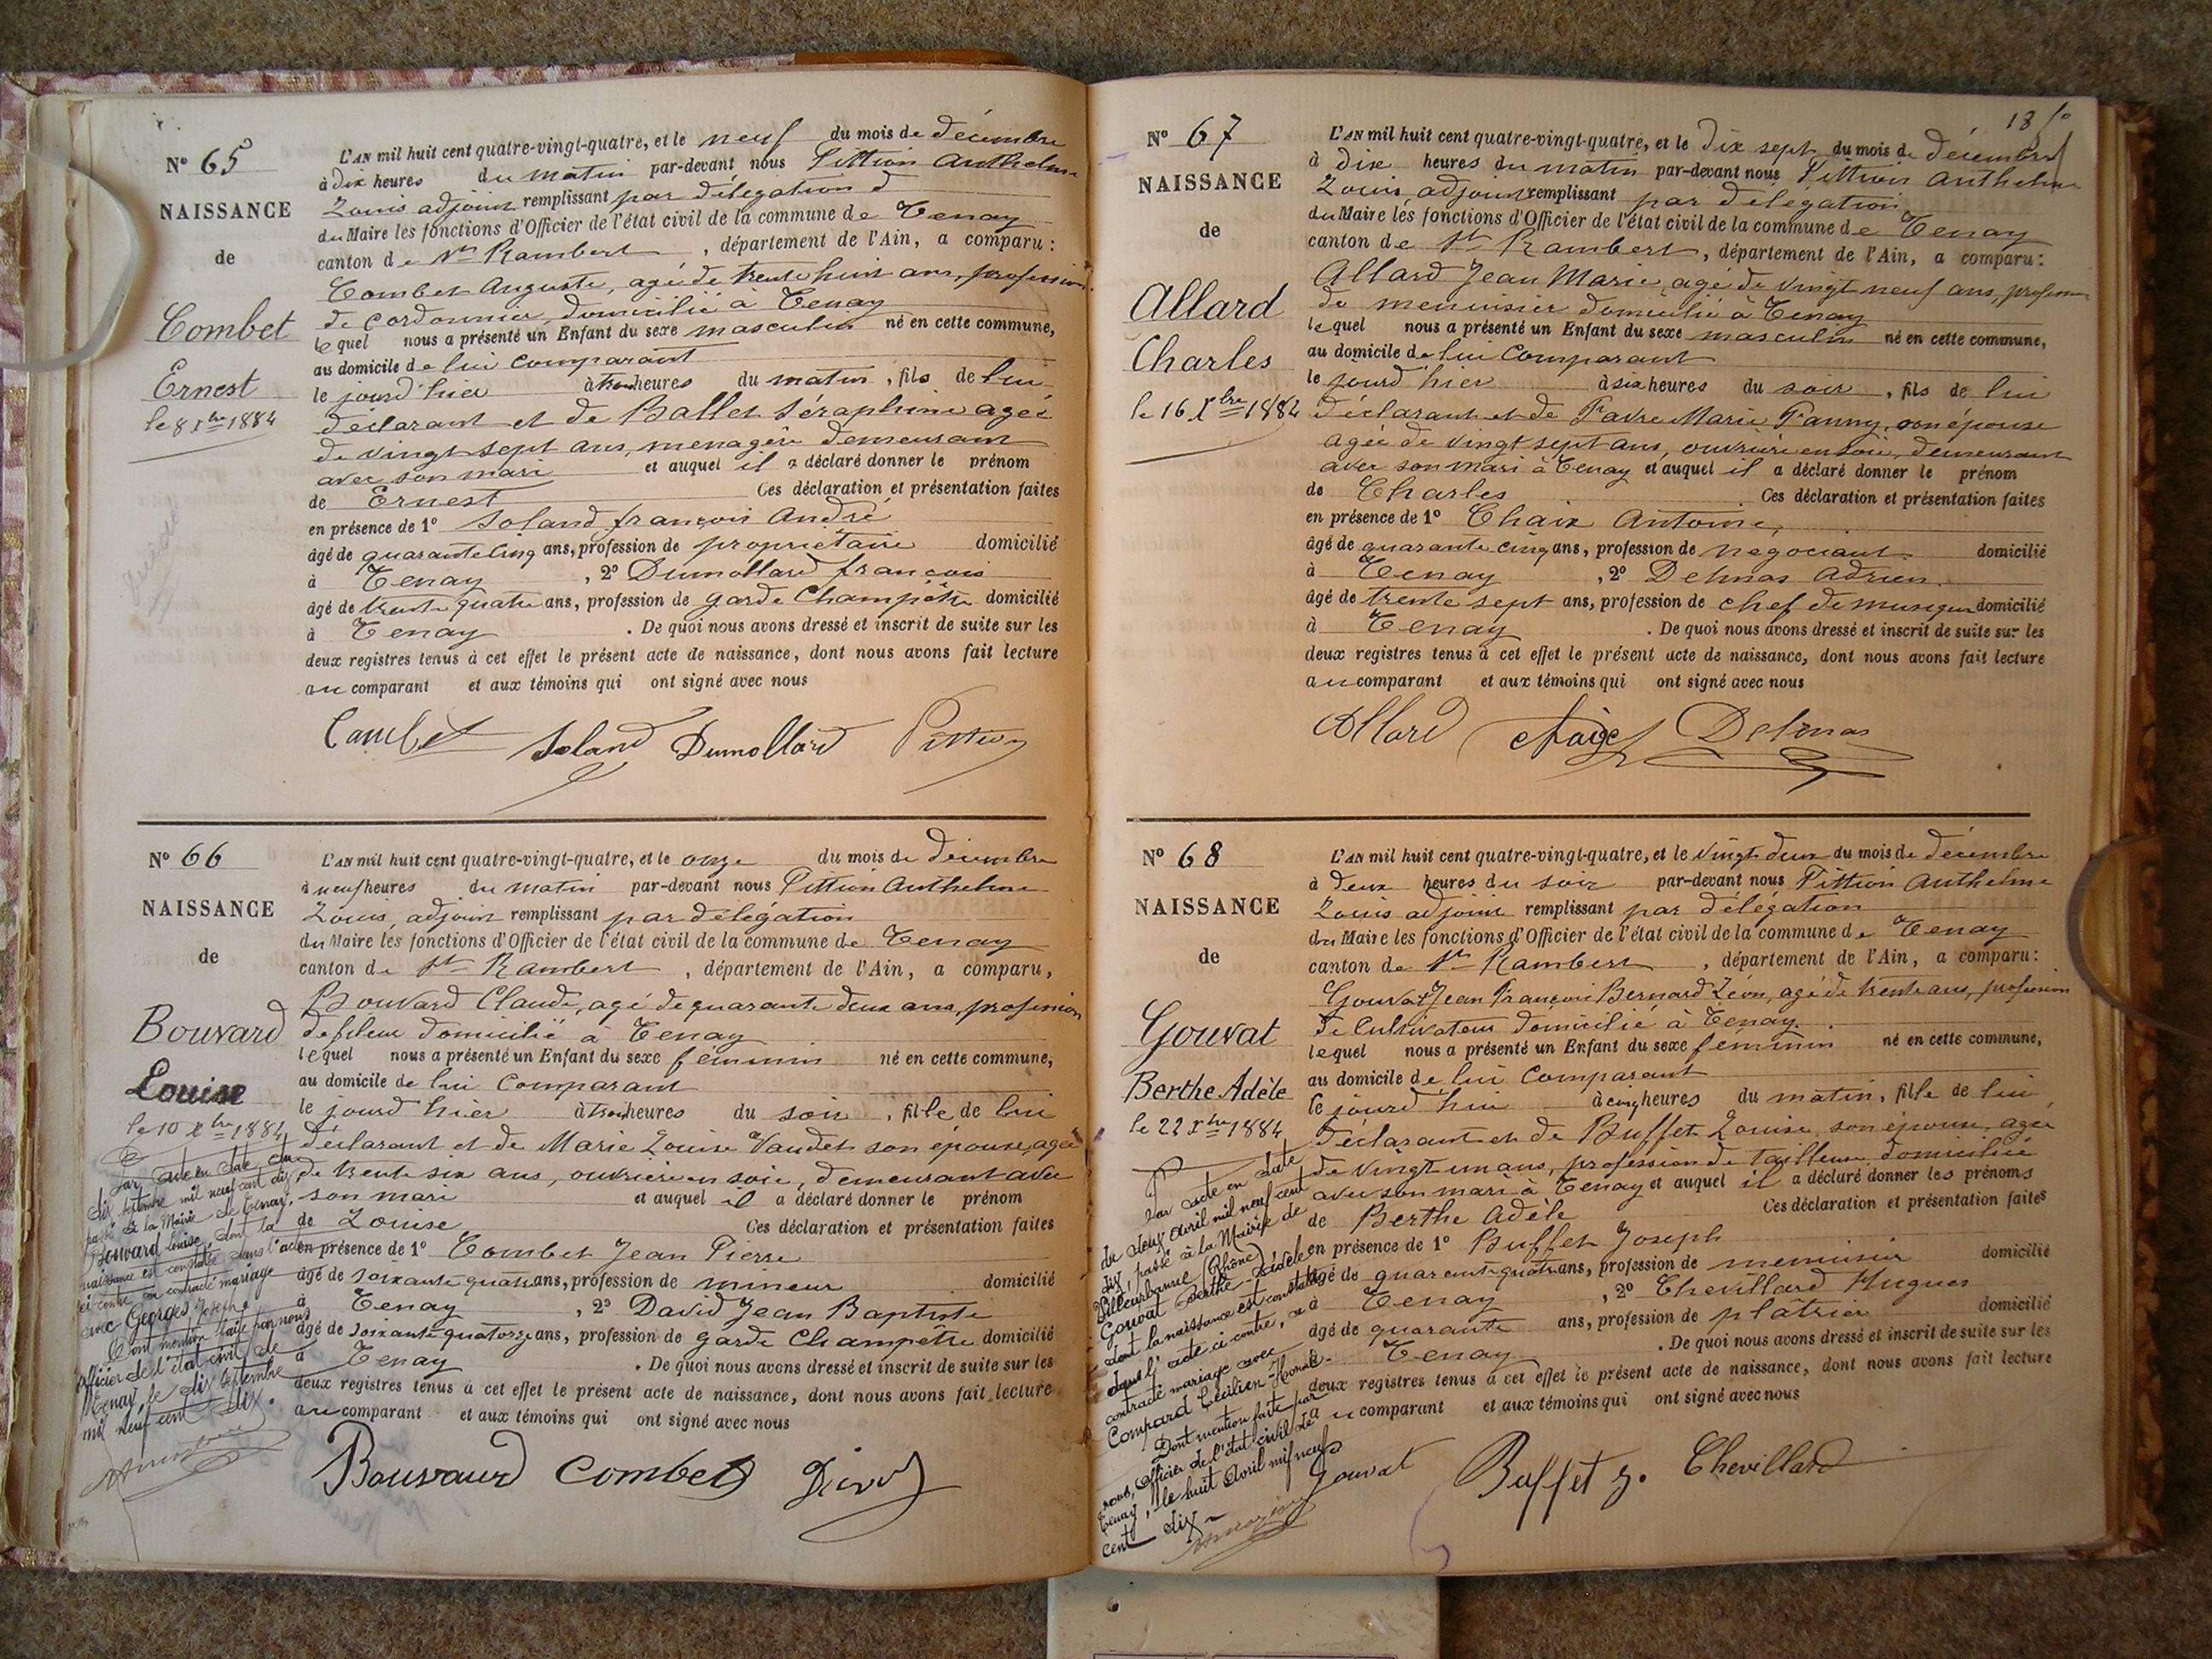 N° 65
NAISSANCE
de
Combet
Ernest
le 8 Xbre 1884
L'AN mil huit cent quatre-vingt-quatre, et le neuf du mois de décembre
à dix heures du matin par-devant nous Pittion Anthelme
Louis adjoint remplissant par délégation d
du Maire les fonctions d'Officier de l'état civil de la commune de Tenay
canton de St Rambert, département de l'Ain, a comparu :
Combet Auguste, agé de trente huit ans, profession
de cordonnier, domicilié à Tenay
lequel nous a présenté un Enfant du sexe masculin né en cette commune,
au domicile de lui comparant
le jourd'hier à trois heures du matin, fils de lui
déclarant et de Ballet Séraphine agée
de vingt sept ans, menagère demeurant
avec son mari et auquel il a déclaré donner le prénom
de Ernest Ces déclaration et présentation faites
en présence de 1° Soland françois André
âgé de quarante cinq ans, profession de propriétaire domicilié
à Tenay, 2° Dumollard françois
âgé de trente quatre ans, profession de garde Champêtre domicilié
à Tenay. De quoi nous avons dressé et inscrit de suite sur les
deux registres tenus à cet effet le présent acte de naissance, dont nous avons fait lecture
au comparant et aux témoins qui ont signé avec nous
Combet Soland Dumollard Pittion
N° 66
NAISSANCE
de
Bouvard
Louise
le 10 Xbre 1884
Par acte en date du
dix septembre mil neuf cent dix,
passé à la Mairie de Tenay,
Bouvard Louise, dont la
naissance est constatée dans l'acte
ci-contre, a contracté mariage
avec Georges Joseph
Dont mention faite par nous
officier de l'état civil de
Tenay, le dix septembre
mil neuf cent dix.
L'AN mil huit cent quatre-vingt-quatre, et le onze du mois de décembre
à neuf heures du matin par-devant nous Pittion Anthelme
Louis, adjoint remplissant par délégation
du Maire les fonctions d'Officier de l'état civil de la commune de Tenay
canton de St Rambert, département de l'Ain, a comparu,
Bouvard Claude, agé de quarante deux ans, profession
de fileur domicilié à Tenay
lequel nous a présenté un Enfant du sexe féminin né en cette commune,
au domicile de lui Comparant
le jourd'hier à trois heures du soir, fille de lui
déclarant et de Marie Louise Vaudet son épouse, agée
de trente six ans, ouvrière en soie, demeurant avec
son mari et auquel il a déclaré donner le prénom
de Louise Ces déclaration et présentation faites
en présence de 1° Combet Jean Pierre
âgé de soixante quatre ans, profession de mineur domicilié
à Tenay, 2° David Jean Baptiste
âgé de soixante quatorze ans, profession de garde Champêtre domicilié
à Tenay. De quoi nous avons dressé et inscrit de suite sur les
deux registres tenus à cet effet le présent acte de naissance, dont nous avons fait lecture
au comparant et aux témoins qui ont signé avec nous
Bouvard Combet David
18
N° 67
NAISSANCE
de
Allard
Charles
le 16 Xbre 1884
L'AN mil huit cent quatre-vingt-quatre, et le dix sept du mois de décembre
à dix heures du matin par-devant nous Pittion Anthelme
Louis adjoint remplissant par délégation
du Maire les fonctions d'Officier de l'état civil de la commune de Tenay
canton de St Rambert, département de l'Ain, a comparu :
Allard Jean Marie, agé de vingt neuf ans, profession
de menuisier domicilié à Tenay
lequel nous a présenté un Enfant du sexe masculin né en cette commune,
au domicile de lui Comparant
le jourd'hier à six heures du soir, fils de lui
déclarant et de Favre Marie Fanny, son épouse
agée de vingt sept ans, ouvrière en soie, demeurant
avec son mari à Tenay et auquel il a déclaré donner le prénom
de Charles. Ces déclaration et présentation faites
en présence de 1° Chaix Antoine,
âgé de quarante cinq ans, profession de négociant domicilié
à Tenay, 2° Delmas Adrien.
âgé de trente sept ans, profession de chef de musique domicilié
à Tenay. De quoi nous avons dressé et inscrit de suite sur les
deux registres tenus à cet effet le présent acte de naissance, dont nous avons fait lecture
au comparant et aux témoins qui ont signé avec nous
Allard Chaix Delmas
N° 68
NAISSANCE
de
Gouvat
Berthe Adèle
le 22 Xbre 1884
Par acte en date
du deux avril mil neuf cent
dix, passé à la Mairie de
Villeurbanne (Rhône)
Gouvat Berthe-Adèle
dont la naissance est constatée
dans l'acte ci-contre, a
contracté mariage avec
Compard Cécilien-Honoré.
Dont mention faite par
nous, officier de l'état civil de
Tenay, le huit avril mil neuf
cent dix.
L'AN mil huit cent quatre-vingt-quatre, et le vingt deux du mois de décembre
à deux heures du soir par-devant nous Pittion Anthelme
Louis adjoint remplissant par délégation
du Maire les fonctions d'Officier de l'état civil de la commune de Tenay
canton de St Rambert, département de l'Ain, a comparu :
Gouvat Jean François Bernard Léon, agé de trente ans, profession
de Cultivateur domicilié à Tenay.
lequel nous a présenté un Enfant du sexe féminin né en cette commune,
au domicile de lui Comparant
le jourd'hui à cinq heures du matin, fille de lui
déclarant et de Buffet Louise, son épouse, agée
de vingt un ans, profession de tailleuse domiciliée
avec son mari à Tenay et auquel il a déclaré donner les prénoms
de Berthe Adèle Ces déclaration et présentation faites
en présence de 1° Buffet Joseph
âgé de quarante quatre ans, profession de menuisier domicilié
à Tenay, 2° Chevillard Hugues
âgé de quarante ans, profession de plâtrier domicilié
à Tenay. De quoi nous avons dressé et inscrit de suite sur les
deux registres tenus à cet effet le présent acte de naissance, dont nous avons fait lecture
au comparant et aux témoins qui ont signé avec nous
Gouvat Buffet J. Chevillard